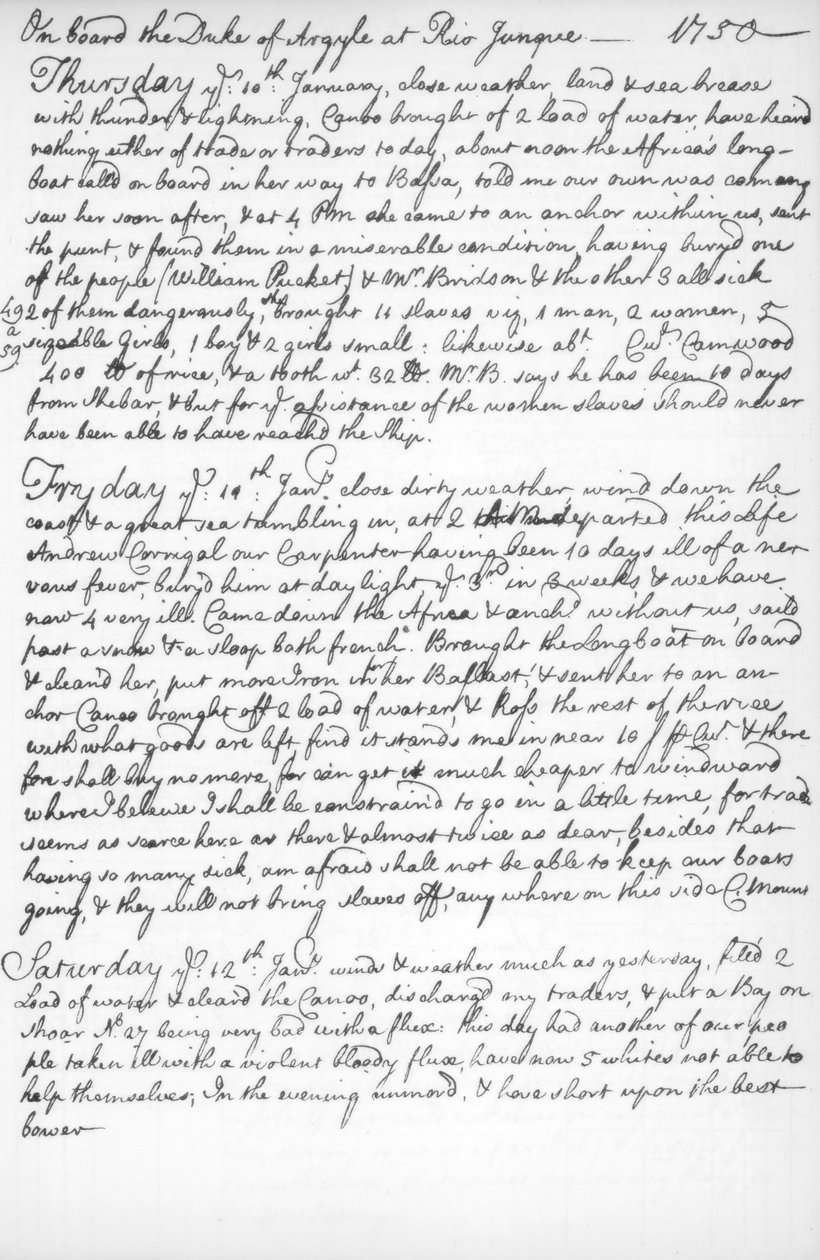 On board the Duke of Argyle at Rio Junque — 1750
Thursday ye: 10th: January, close weather, land & sea brease
with thunder & lightning, Canoo brought of 2 load of water, have heard
nothing either of trade or traders to day, about noon the Africa's long-
boat call'd on board in her way to Bassa, told me our own was coming
saw her soon after, & at 4 PM she came to an anchor within us, sent
the punt, & found them in a miserable condition, having bury'd one
of the people (William Pucket) & Mr. Bridson & the other 3 all sick
2 of them dangerously, she brought 11 slaves viz, 1 man, 2 women, 5
49
a
59
sizeable Girls, 1 boy & 2 girls small: likewise abt. Cwt. Camwood
400 lb of rice, & a tooth wt. 32 lb. Mr. B. says he has been 10 days
from Shebar, & but for ye. assistance of the women slaves should never
have been able to have reach'd the Ship.
Fryday ye: 11th: Jany. close dirty weather, wind down the
coast & a great sea tumbling in, at 2 departed this Life
Andrew Corrigal our Carpenter having been 10 days ill of a ner
vous fever, bury'd him at daylight, ye. 3rd in 3 weeks & we have
now 4 very ill. Came down the Africa & anchd. without us, sail'd
past a snow & a sloop both french. Brought the Longboat on board
& clean'd her, put more Iron in her for Ballast, & sent her to an an-
chor Canoo brought off 2 load of water, & Ross the rest of the rice
with what goods are left find it stands me in near 10/ p Cwt. & there
fore shall buy no more, for can get it much cheaper to windward
where I beleive I shall be constrain'd to go in a little time, for trade
seems as scarce here as there & almost twice as dear, besides that
having so many sick, am afraid shall not be able to keep our boats
going, & they will not bring slaves off, any where on this side C. Mount
Saturday ye: 12th: Jany. winds & weather much as yesterday, fill'd 2
Load of water & clear'd the Canoo, discharg'd my traders, & put a Boy on
shoar No. 27 being very bad with a flux: this day had another of our peo
ple taken ill with a violent bloody fluxe, have now 5 whites not able to
help themselves; In the evening unmor'd, & hove short upon the best
bower